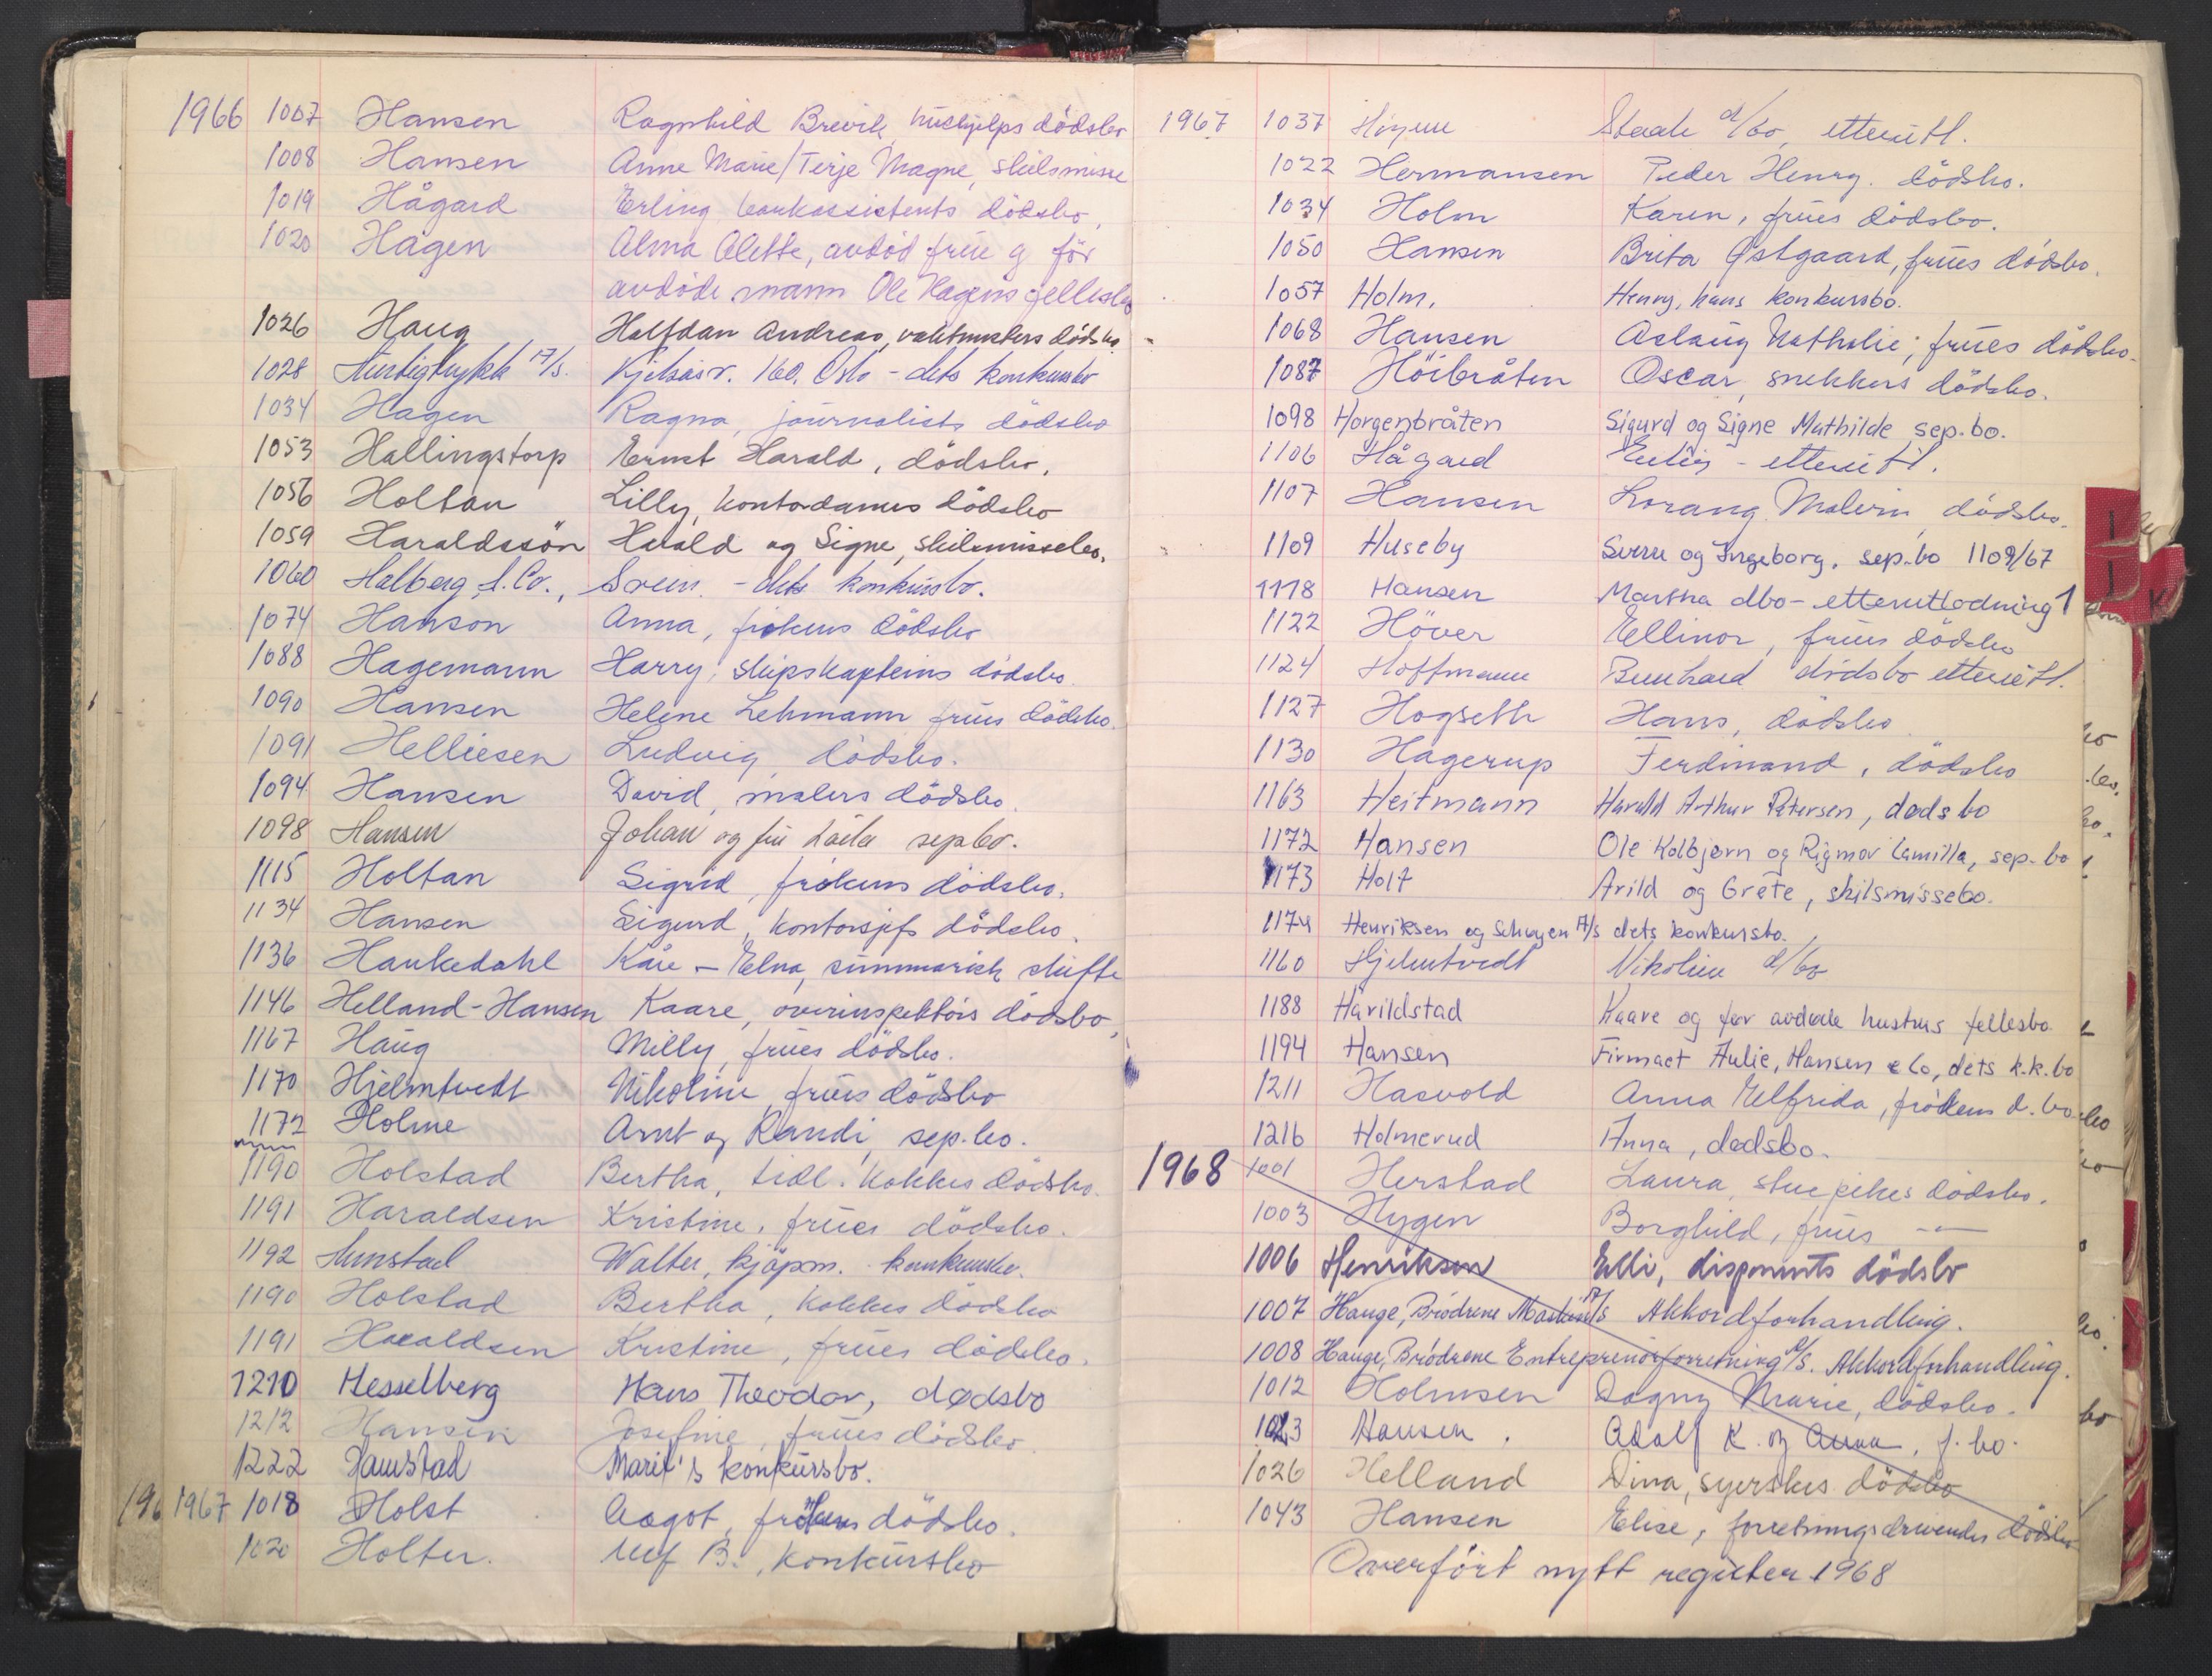 1966 1007 Hansen Ragnhild Brevik, hushjelps dödsbo
1008 Hansen Anne Marie/Terje Magne, skilsmisse
1019 Hågård Erling bankassistents dödsbo
1020 Hagen Alma Alette, avdöd frue og för
avdöde mann Ole Hagens fellesbo
1026 Haug Halfdan Andreas, vaktmesters dödsbo
1028 Hurtigtrykk A/S. Kjelsåsv. 160, Oslo - dets konkursbo
1034 Hagen Ragna, journalists dödsbo
1053 Hallingstorp Ernst Harald, dödsbo.
1056 Holtan Lilly, kontordames dödsbo
1059 Haraldssön Harald og Signe, skilsmissebo.
1060 Halberg & Co., Svein. - dets konkursbo.
1074 Hanson Anna, frökens dödsbo
1088 Hagemann Harry, skipskapteins dödsbo
1090 Hansen Helene Lehmann frues dödsbo.
1091 Helliesen Ludvig dödsbo.
1094 Hansen David, malers dödsbo.
1098 Hansen Johan og fru Laila sepbo.
1115 Holtan Sigrid, frökens dödsbo.
1134 Hansen Sigurd, kontorsjefs dödsbo.
1136 Haukedahl Kåre - Elna, summarisk skifte
1146 Helland-Hansen Kaare, overinspektörs dödsbo,
1167 Haug Milly, frues dödsbo.
1170 Hjelmtvedt Nikoline, frues dödsbo
1172 Holme Arnt og Randi, sep.bo.
1190 Holstad Bertha, tidl. kokkes dödsbo.
1191 Haraldsen Kristine, frues dödsbo.
1192 Hunstad Walter, kjöpm. konkursbo.
1190 Holstad Bertha, kokkes dödsbo
1191 Haraldsen Kristine, frues dödsbo.
1210 Hesselberg Hans Theodor, dødsbo
1212 Hansen Josefine, frues dödsbo
1222 Hamstad Marit's konkursbo.
196 1967 1018 Holst Aagot, frökens dödsbo.
1020 Holter. Ulf B., konkursbo
1967 1037 d/bo, etterutl.
1022 Hermansen Peder Henry. dödsbo.
1034 Holm Karen, frues dödsbo.
1050 Hansen Brita Østgaard, frues dödsbo.
1057 Holm, Henry, hans konkursbo.
1068 Hansen Aslaug Nathalie, frues dödsbo.
1087 Höibråten Oscar, snekkers dödsbo.
1098 Horgenbråten Sigurd og Signe Mathilde, sep.bo.
1106 Hågård Erling - etterutl.
1107 Hansen Lorang Malvin, dödsbo.
1109 Huseby Sverre og Ingeborg, sep.bo 1109/67
1118 Hansen Martha dbo - etterutlodning
1122 Höver Ellinor, frues dödsbo
1124 Hoffmann Bernhard dödsbo etterutl.
1127 Hogseth Hans, dödsbo
1130 Hagerup Ferdinand, dödsbo
1163 Heitmann Harald Arthur Petersen, dødsbo
1172 Hansen Ole Kolbjørn og Rigmor Camilla, sep.bo
1173 Holt Arild og Grete, skilsmissebo.
1174 Henriksen og Schøyen A/S dets konkursbo.
1160 Hjelmtvedt Nikoline d/bo
1188 Harildstad Kaare og før avdøde hustrus fellesbo
1194 Hansen Firmaet Aulie, Hansen & Co, dets k.k.bo
1211 Hasvold Anna Elfrida, frökens d.bo
1216 Holmerud Anna, dødsbo.
1968 1001 Herstad Laura, stuepikes dödsbo.
1003 Hygen Borghild, frues -"-
1006 Henriksen Elli, disponents dödsbo
1007 Hauge, Brödrene Maskin A/S Akkordforhandling.
1008 Hauge, Brödrene Entreprenörforretning A/S. Akkordforhandling.
1012 Holmsen Dagny Marie, dödsbo.
1023 Hansen. Adolf K. og Anna, f.bo.
1026 Helland Dina, syerskes dödsbo
1043 Hansen Elise, forretningsdrivendes dödsbo
Overfört nytt register 1968